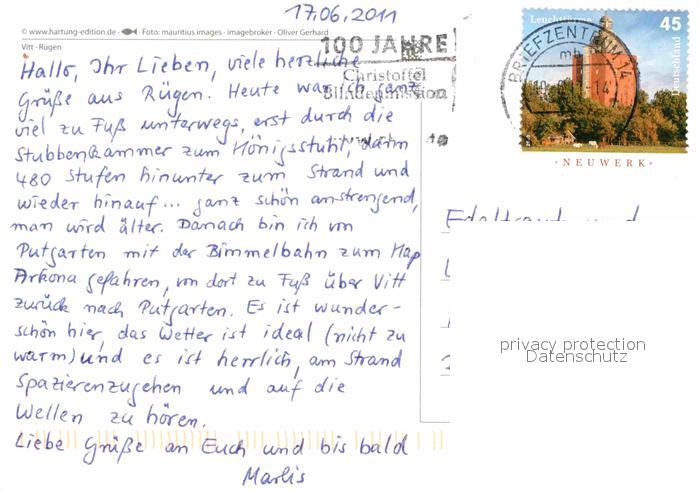 17.06.2011
© www.hartung-edition.de · Foto: mauritius images · imagebroker · Oliver Gerhard
Vitt - Rügen
Hallo, Ihr Lieben, viele herzliche
Grüße aus Rügen. Heute war ich ganz
viel zu Fuß unterwegs, erst durch die
Stubbenkammer zum Königsstuhl, dann
480 Stufen hinunter zum Strand und
wieder hinauf... ganz schön anstrengend,
man wird älter. Danach bin ich von
Putgarten mit der Bimmelbahn zum Kap
Arkona gefahren, von dort zu Fuß über Vitt
zurück nach Putgarten. Es ist wunder-
schön hier, das Wetter ist ideal (nicht zu
warm) und es ist herrlich, am Strand
spazierenzugehen und auf die
Wellen zu hören.
Liebe Grüße an Euch und bis bald
Marlis
100 JAHRE
Christoffel
Blindenmission
BRIEFZENTRUM 14
mb
Leuchttürme
45
Deutschland
· NEUWERK ·
Edeltraut und
privacy protection
Datenschutz